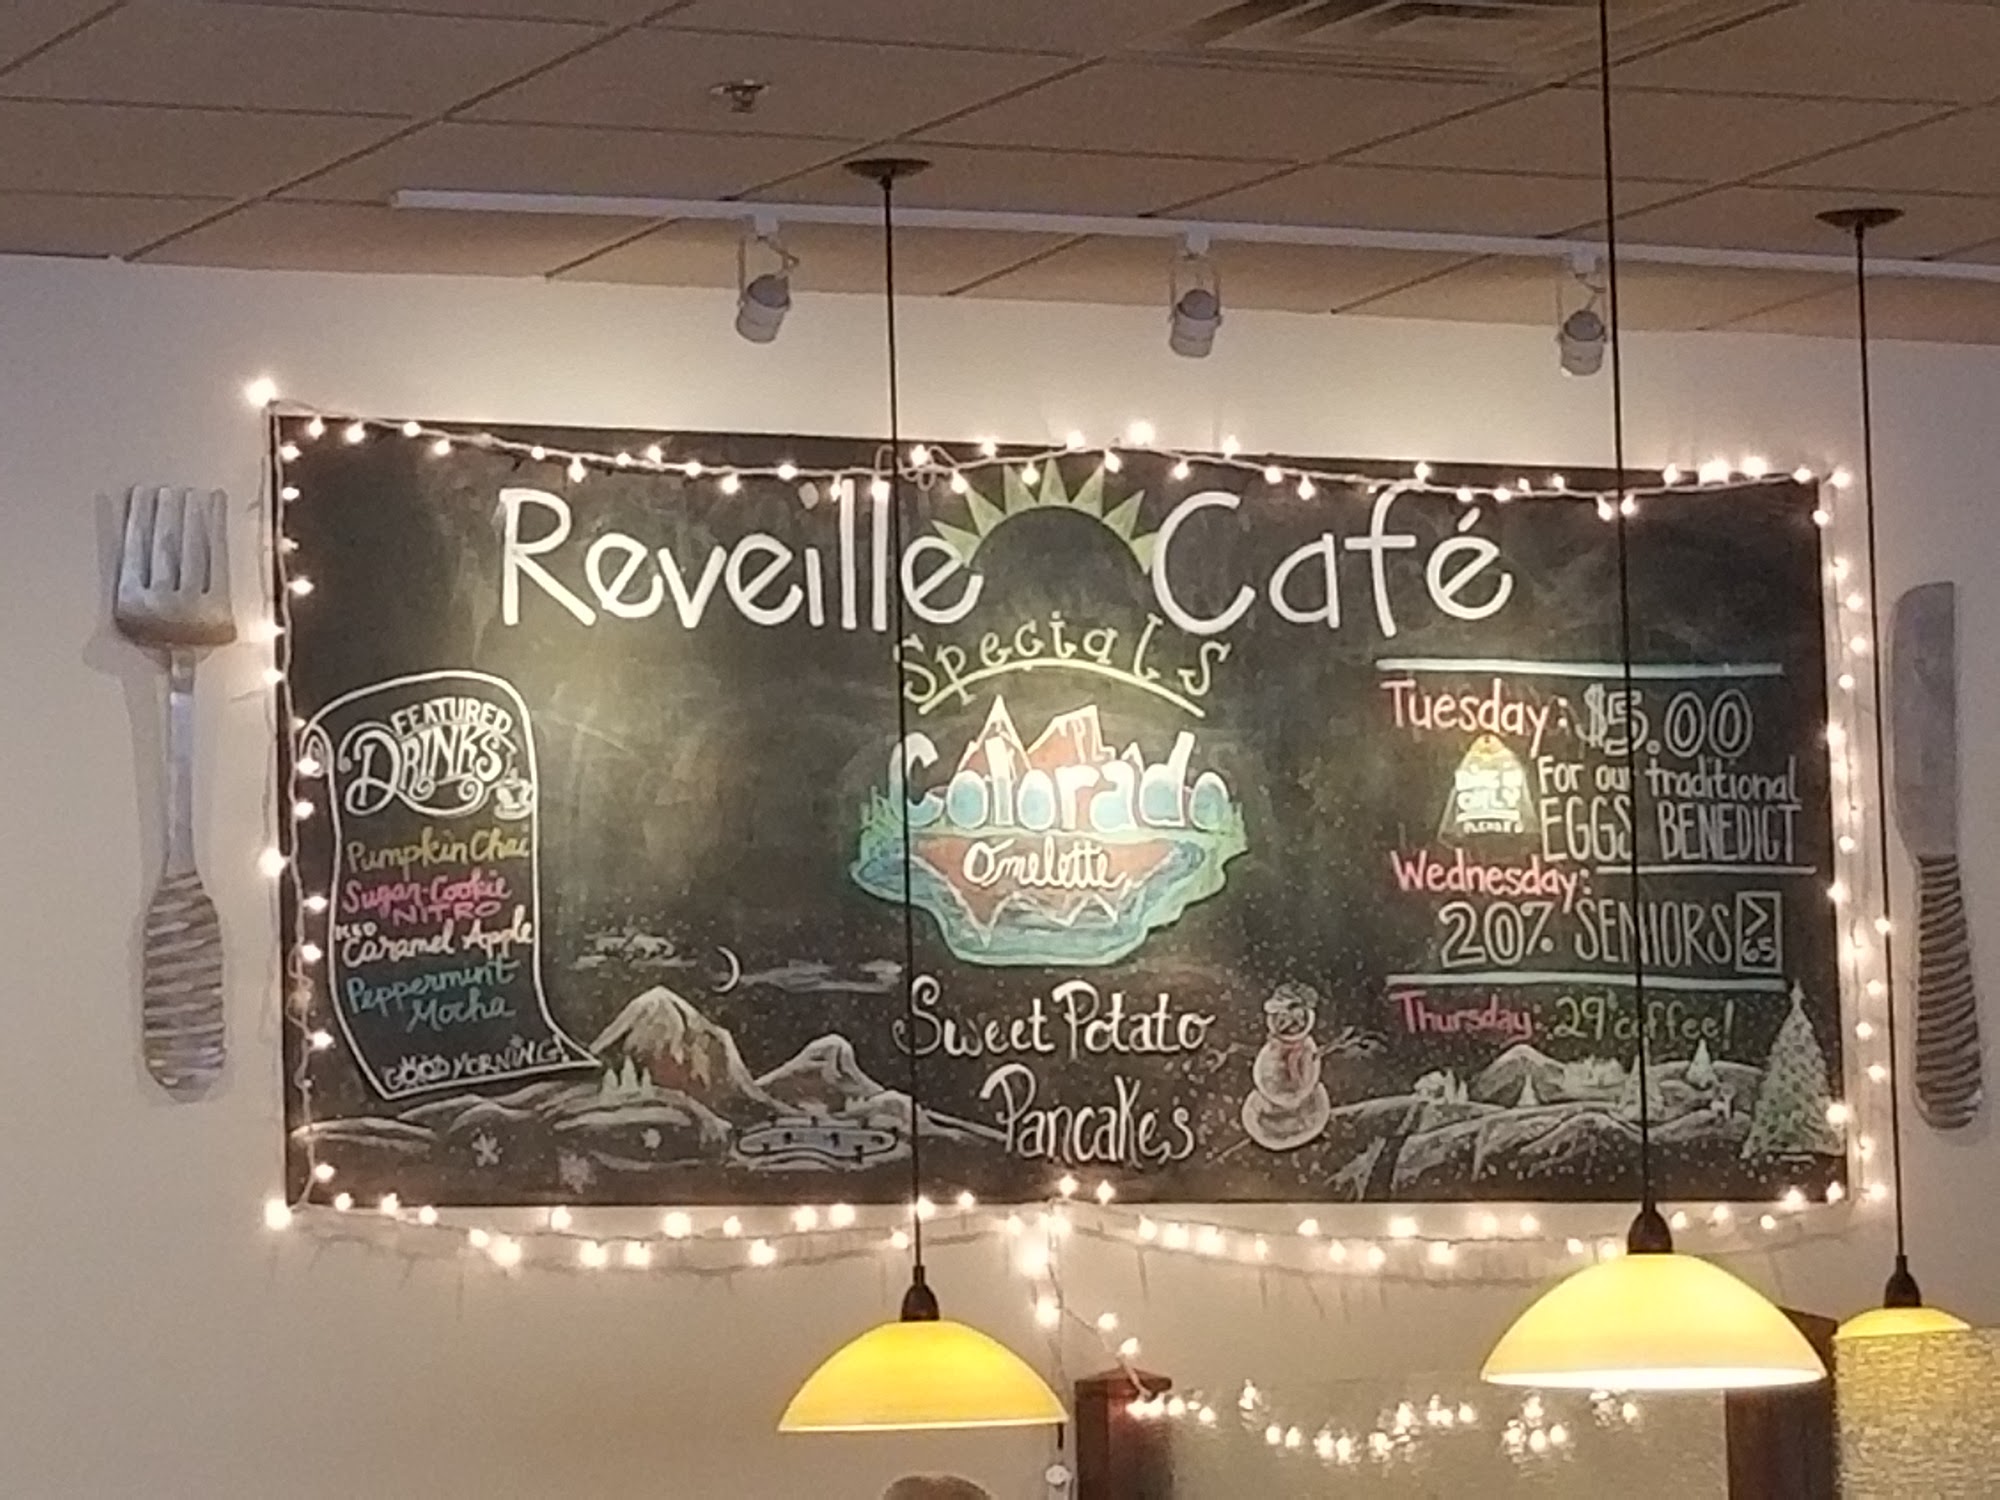 Reveille Café
Specials
FEATURED
DRINKS
Pumpkin Chai
Sugar-Cookie
NITRO
ICED
Caramel Apple
Peppermint
Mocha
GOOD MORNING!
Colorado
Omelette
Sweet Potato
Pancakes
Tuesday: $5.00
DINE IN
ONLY
PLEASE
For our traditional
EGGS BENEDICT
Wednesday:
20% SENIORS >
65
Thursday: 29¢ coffee!